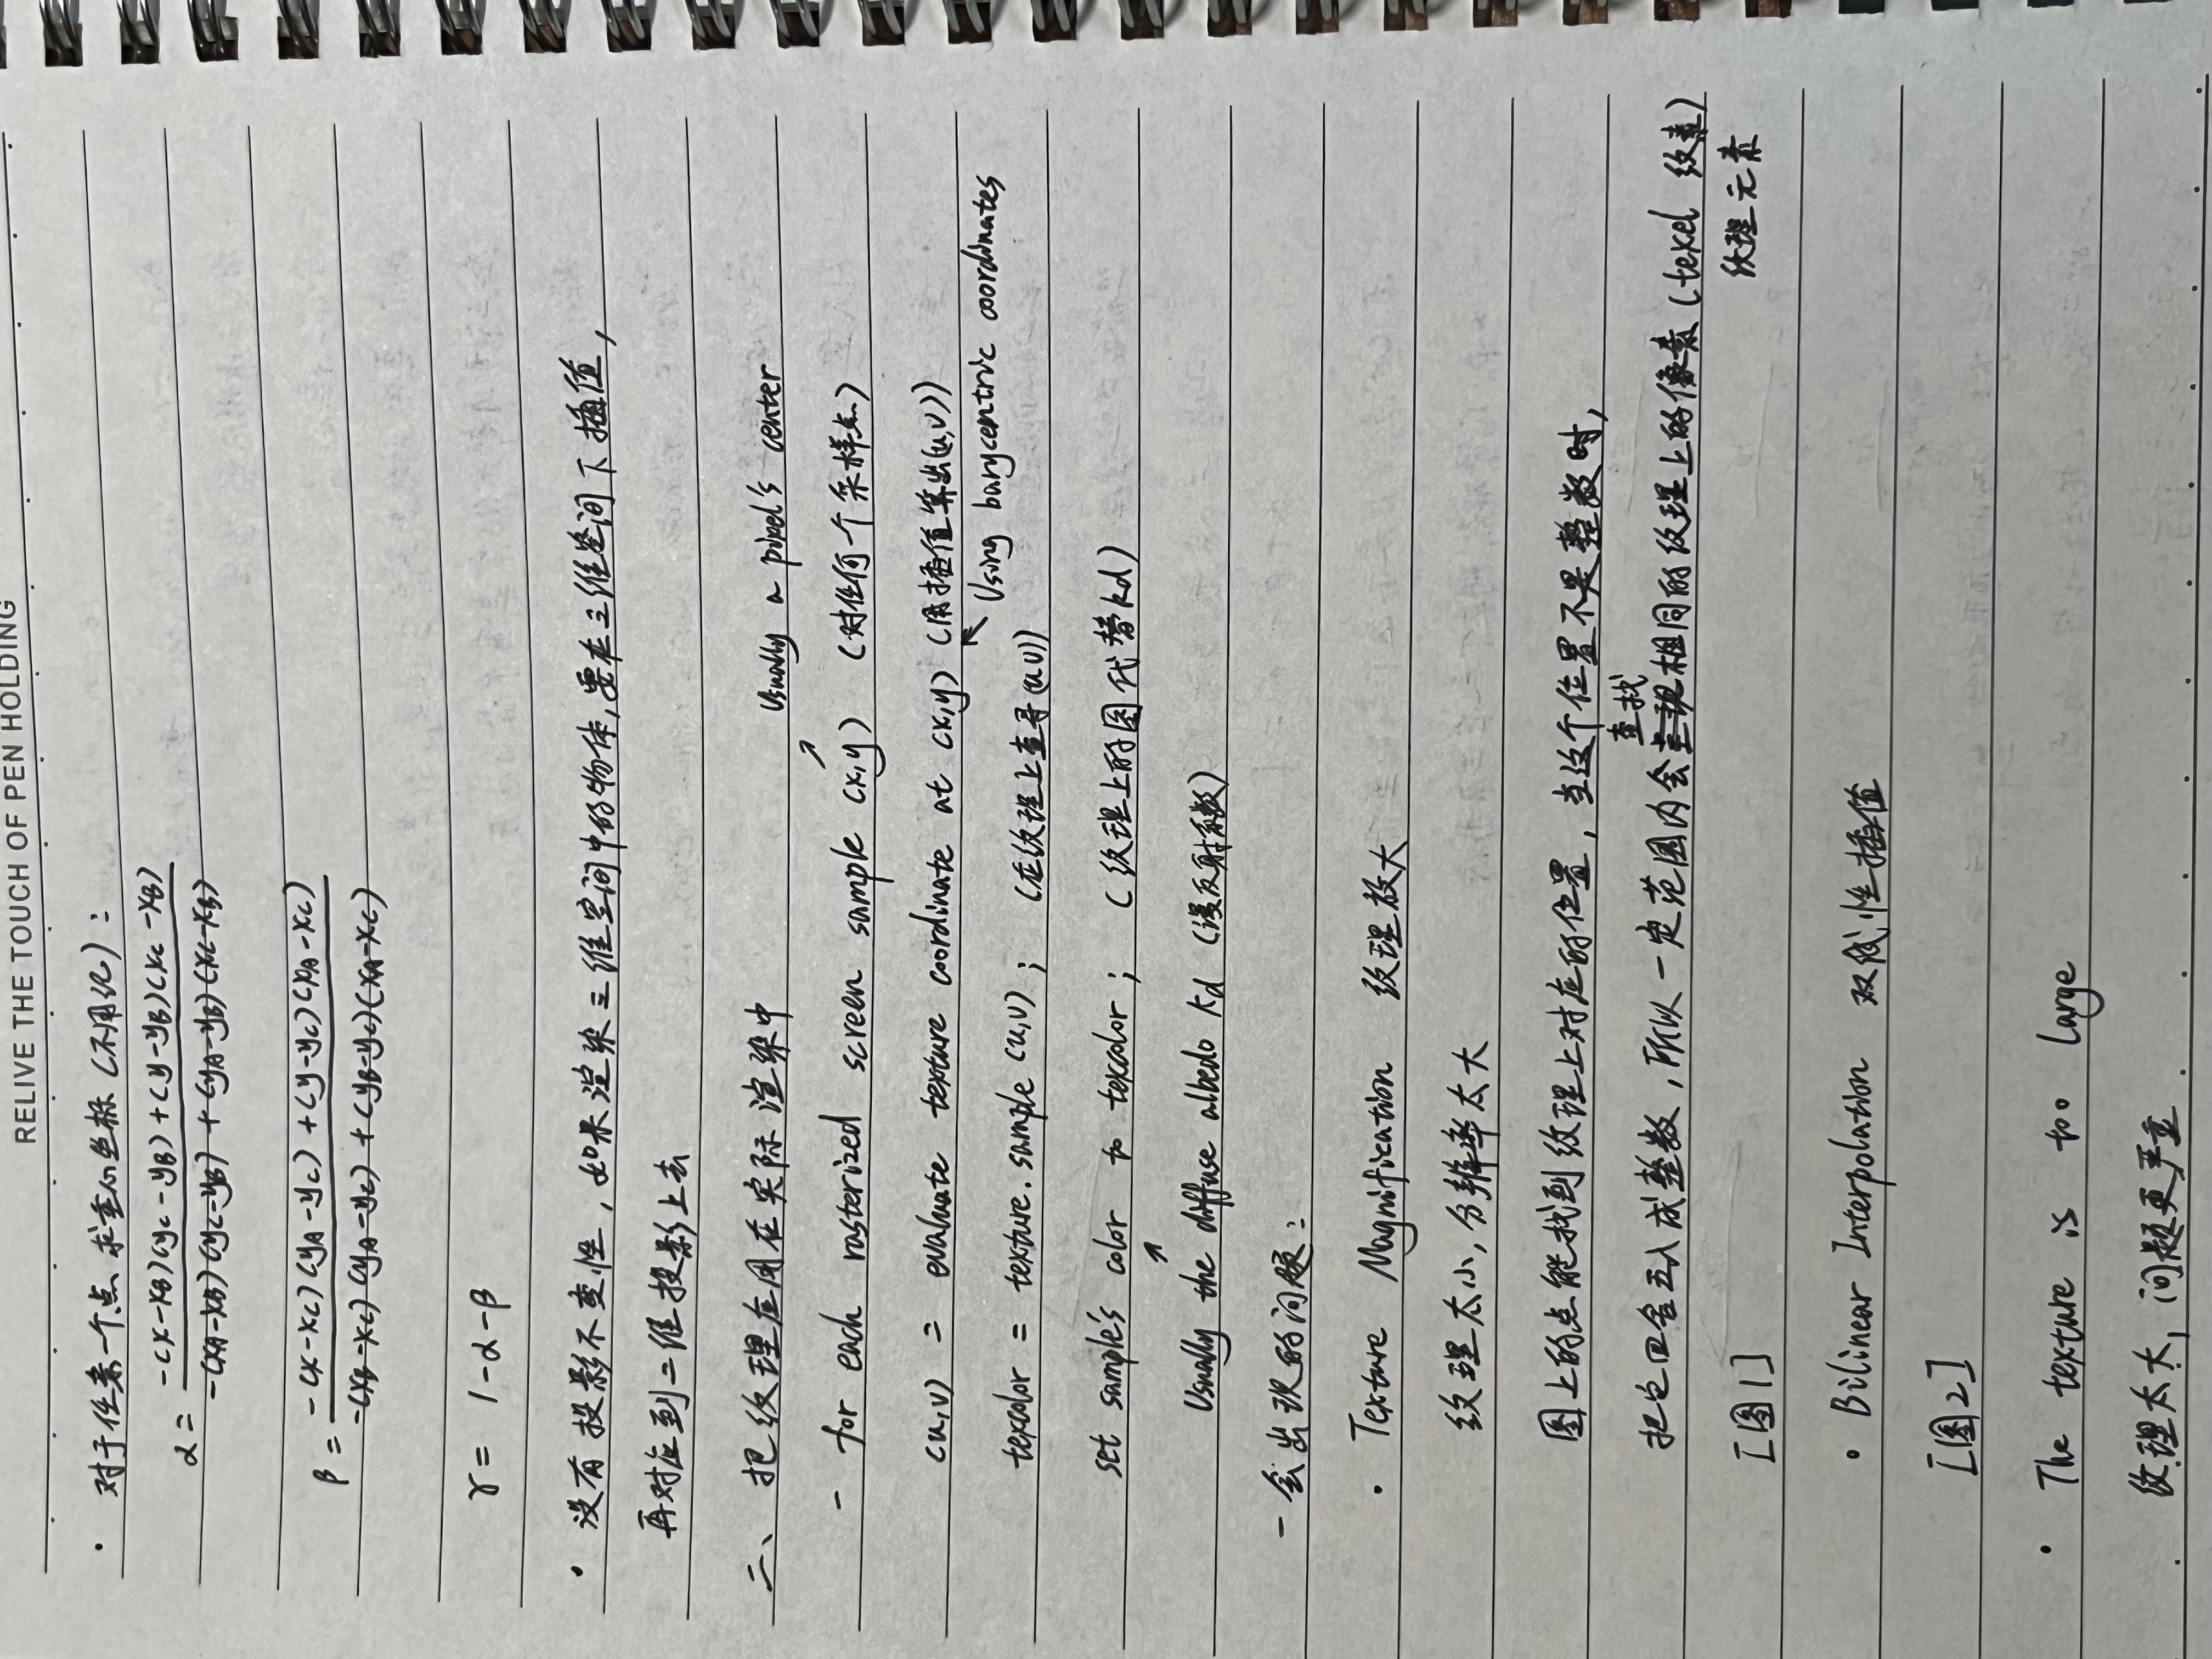 RELIVE THE TOUCH OF PEN HOLDING
· 对于任意一个点求重心坐标 (不用记):
α = -(x-xB)(yC-yB)+(y-yB)(xC-xB) / -(xA-xB)(yC-yB)+(yA-yB)(xC-xB)
β = -(x-xC)(yA-yC)+(y-yC)(xA-xC) / -(xB-xC)(yA-yC)+(yB-yC)(xA-xC)
γ = 1-α-β
· 没有投影不变性, 如果渲染三维空间中的物体, 要在三维空间下插值,
再对应到二维投影上去
二、把纹理应用在实际渲染中
usually a pixel's center
- for each rasterized screen sample (x,y) (对任何一个采样点)
(u,v) = evaluate texture coordinate at (x,y) (用插值算出(u,v))
Using barycentric coordinates
texcolor = texture.sample (u,v); (在纹理上查寻(u,v))
set sample's color to texcolor; (纹理上的图代替kd)
Usually the diffuse albedo kd (漫反射系数)
- 会出现的问题:
· Texture Magnification 纹理放大
纹理太小, 分辨率太大
图上的点能找到纹理上对应的位置, 当这个位置不是整数时,
查找
把它四舍五入成整数, 所以一定范围内会相同的纹理上的像素 (texel 纹素)
纹理元素
[图1]
· Bilinear Interpolation 双线性插值
[图2]
· The texture is to large
纹理太大, 问题更严重